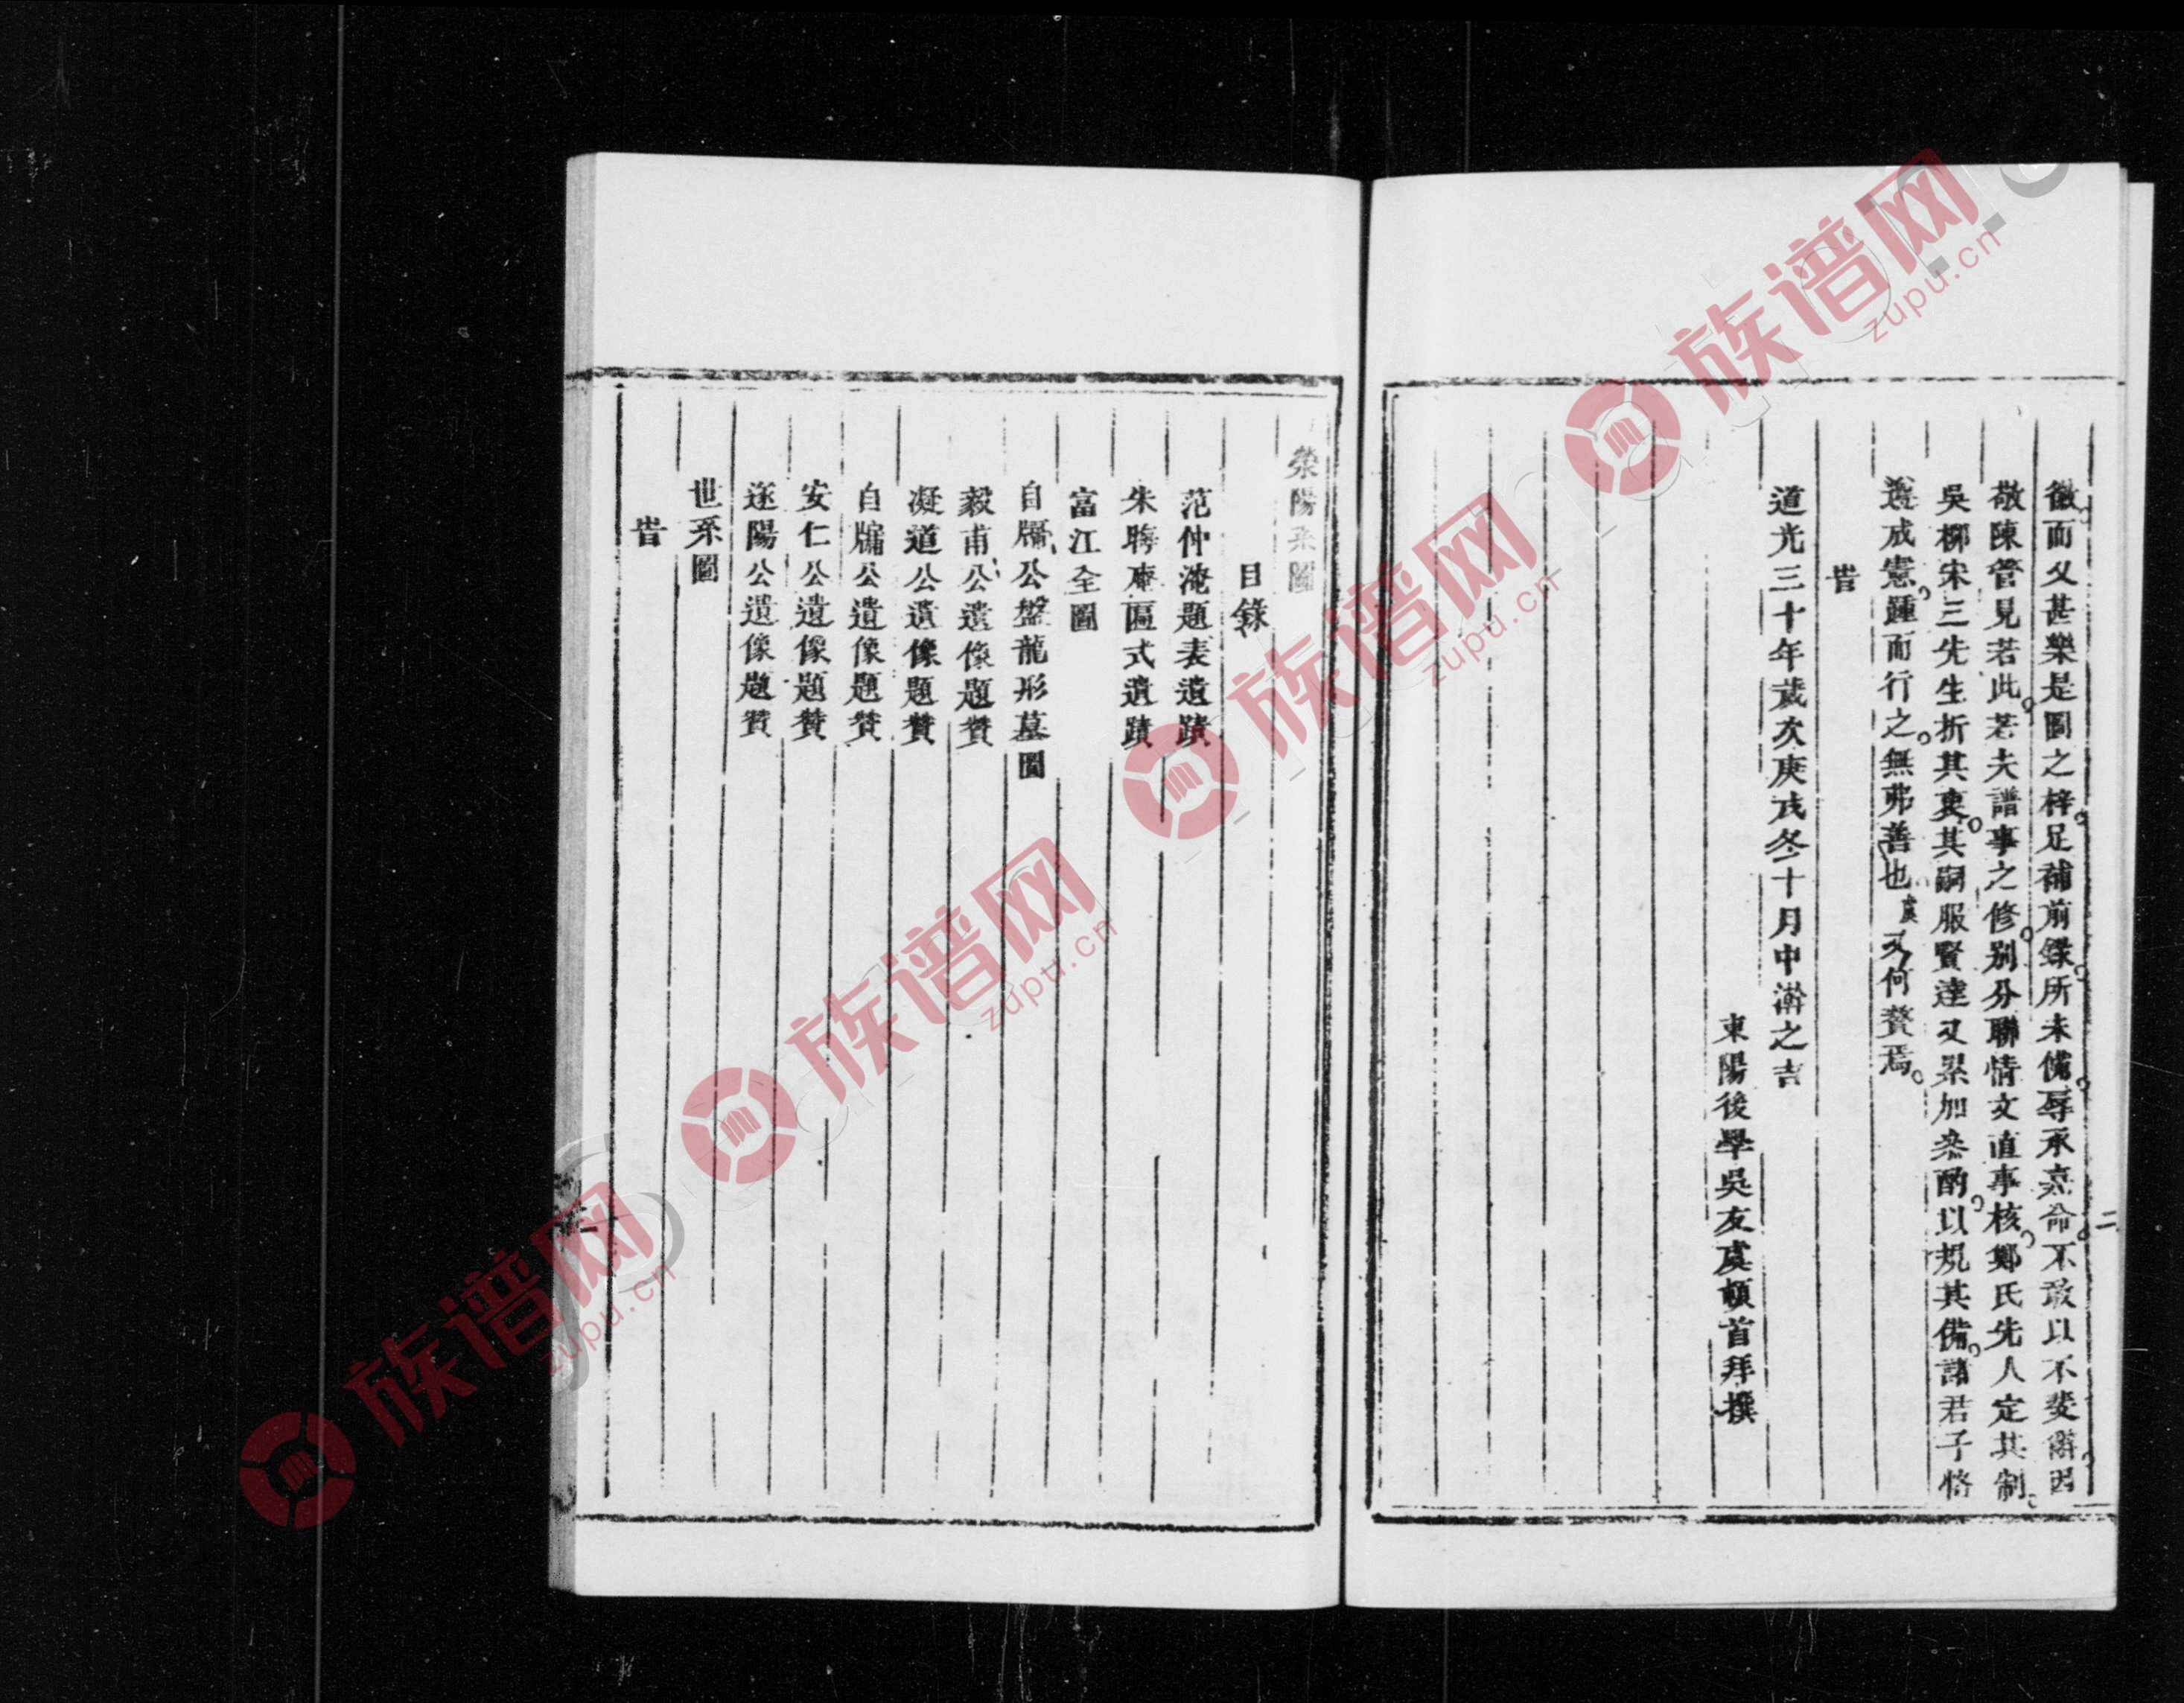 徵而文甚樂是圖之梓足補前錄所未備辱承嘉命不敢以不斐辭因
敬陳管見若此若夫譜事之修別分聯情文直事核鄭氏先人定其制
吳柳宋三先生折其衷其嗣服賢達又累加參酌以規其備諸君子恪
遵成憲踵而行之無弗善也虞又何贅焉
旹
道光三十年歲次庚戌冬十月中澣之吉
東陽後學吳友虞頓首拜撰
二
滎陽系圖
目錄
范仲淹題表遺蹟
朱晦庵匾式遺蹟
富江全圖
自牖公盤龍形墓圖
毅甫公遺像題贊
凝道公遺像題贊
自牖公遺像題贊
安仁公遺像題贊
遂陽公遺像題贊
世系圖
旹
族谱网
zupu.cn
族谱网
zupu.cn
族谱网
zupu.cn
族谱网
zupu.cn